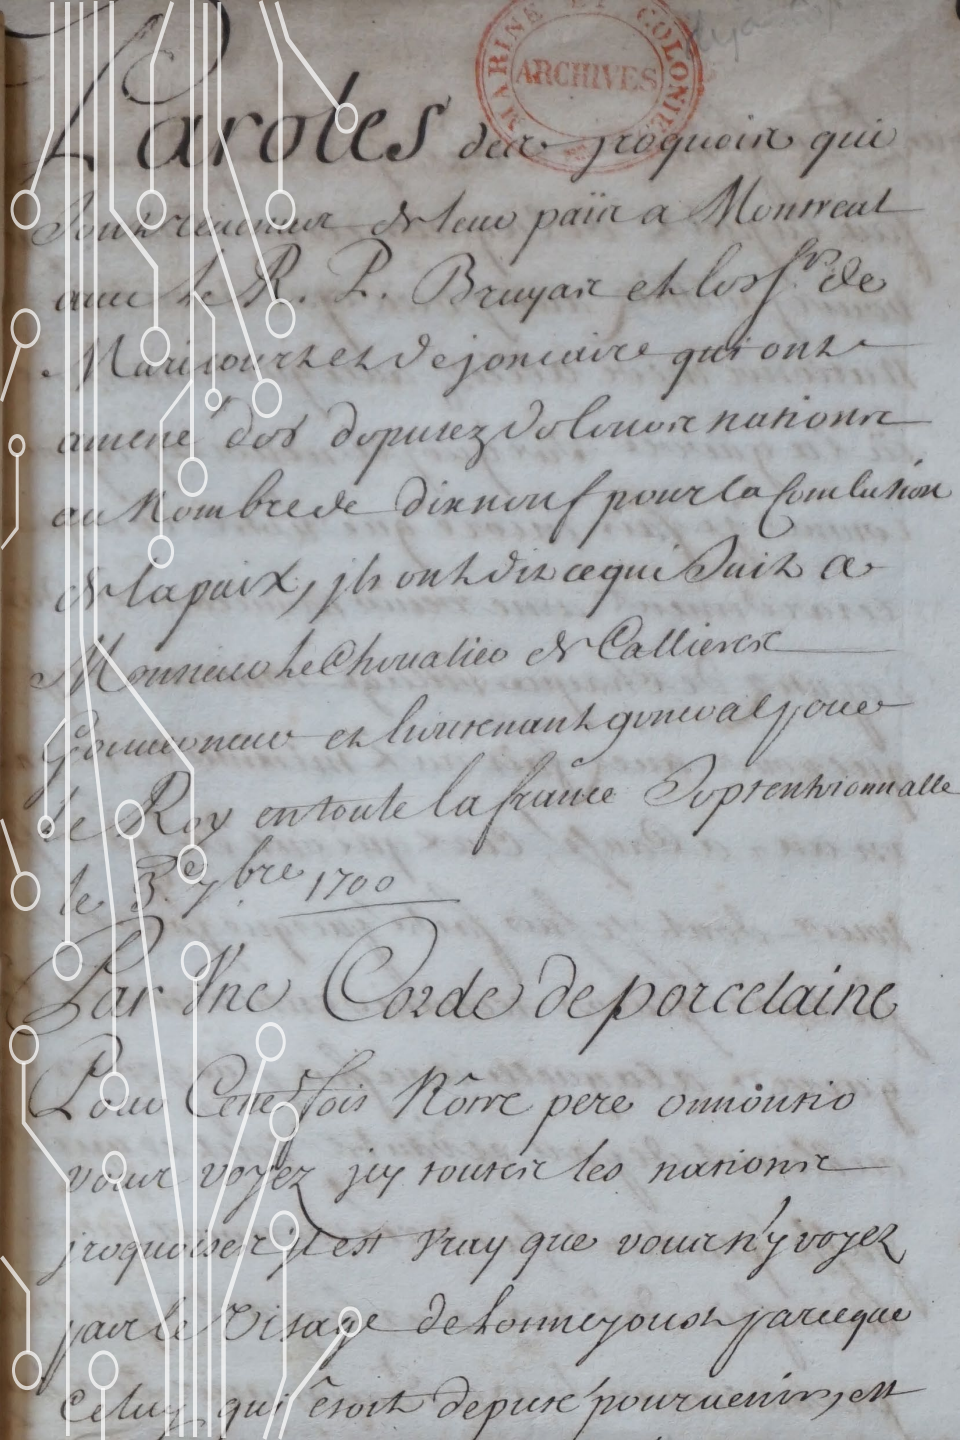 MARINE ET COLONIES
ARCHIVES
Paroles des jroquois qui
sont reuenus de leur païs a Montreal
auec le R. P. Bruyas et les Srs de
Maricourt et de joncaire qui ont
amené des deputez de leurs nations
au Nombre de dix neuf pour la Conclusion
de la paix, jls ont dit ce qui suit a
Monsieur le Cheualier de Callieres
Gouuerneur et lieutenant general pour
le Roy en toute la france Septentrionnalle
le 3.e 7bre 1700
Par Vne Corde de porcelaine
Pour Cette fois Nôtre pere onnontio
vous voyez jcy toutes les nations
jroquoises il est vray que vous n'y voyez
pas le visage de parceque
Celuy qui êtoit deputé pour uenir, est